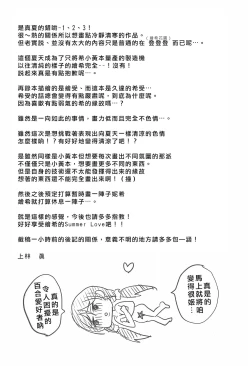 是真夏的錯喲-1、2、3！
很～熱的關係所以想畫點冷靜清寧的作品。
但老實說、並沒有太大的內容只是普通的在 登登登 而已呢…。
這個夏天成為了只將希小黃本量產的製造機
以往清純的樣子的繪希完全--！沒有！
説起來真是有點抱歉呢…。
再跟本篇繪的是繪受、而這本是久違的希受…
希受的話總會變得有點朦朧呢、到底為什麼呢。
因為喜歡有點弱氣的希的緣故嗎…？
雖然是一向如此的事情、畫力低而且完全不色情…。
雖然這次是想挑戰著表現出向夏天一樣清涼的色情
怎麼樣吶！？有好好地變得清涼了吧！？
是雖然同樣是小黃本但想要每次畫出不同氛圍的那派
不僅僅只是小黃本、想要畫更多不同的東西。
但是自身的技術還不太能發揮得出來的緣故
想著的東西還不能完全畫出來啊！（撞）
然後之後預定打算暫時畫一陣子妮希
繪希就打算休息一陣子…。
就是這樣的感覺、今後也請多多指教！
好好享受繪希的Summer Love吧！！
截稿一小時前的後記的關係、意義不明的地方請多多包涵！
上林　眞
真是的
馬上就將咱
變得很姬…
真的是
令人困擾的
百合愛好者吶